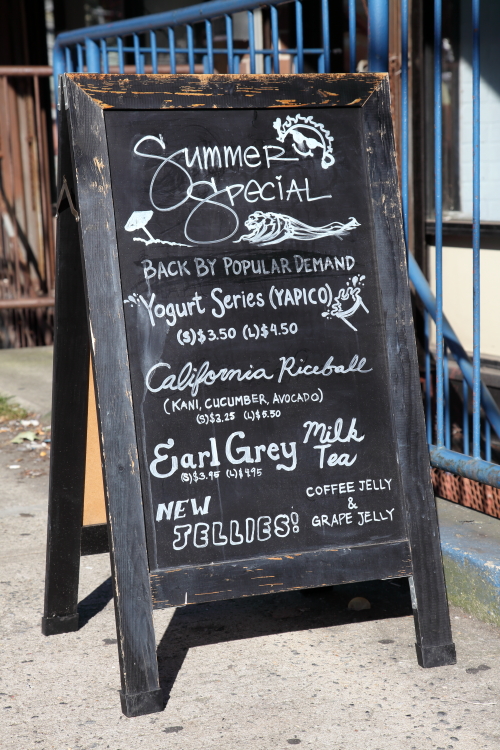 Summer
Special
BACK BY POPULAR DEMAND
Yogurt Series (YAPICO)
(S)$3.50 (L)$4.50
California Riceball
(KANI, CUCUMBER, AVOCADO)
(S)$3.25 (L)$5.50
Earl Grey Milk Tea
(S)$3.95 (L)$4.95
NEW JELLIES!
COFFEE JELLY
&
GRAPE JELLY